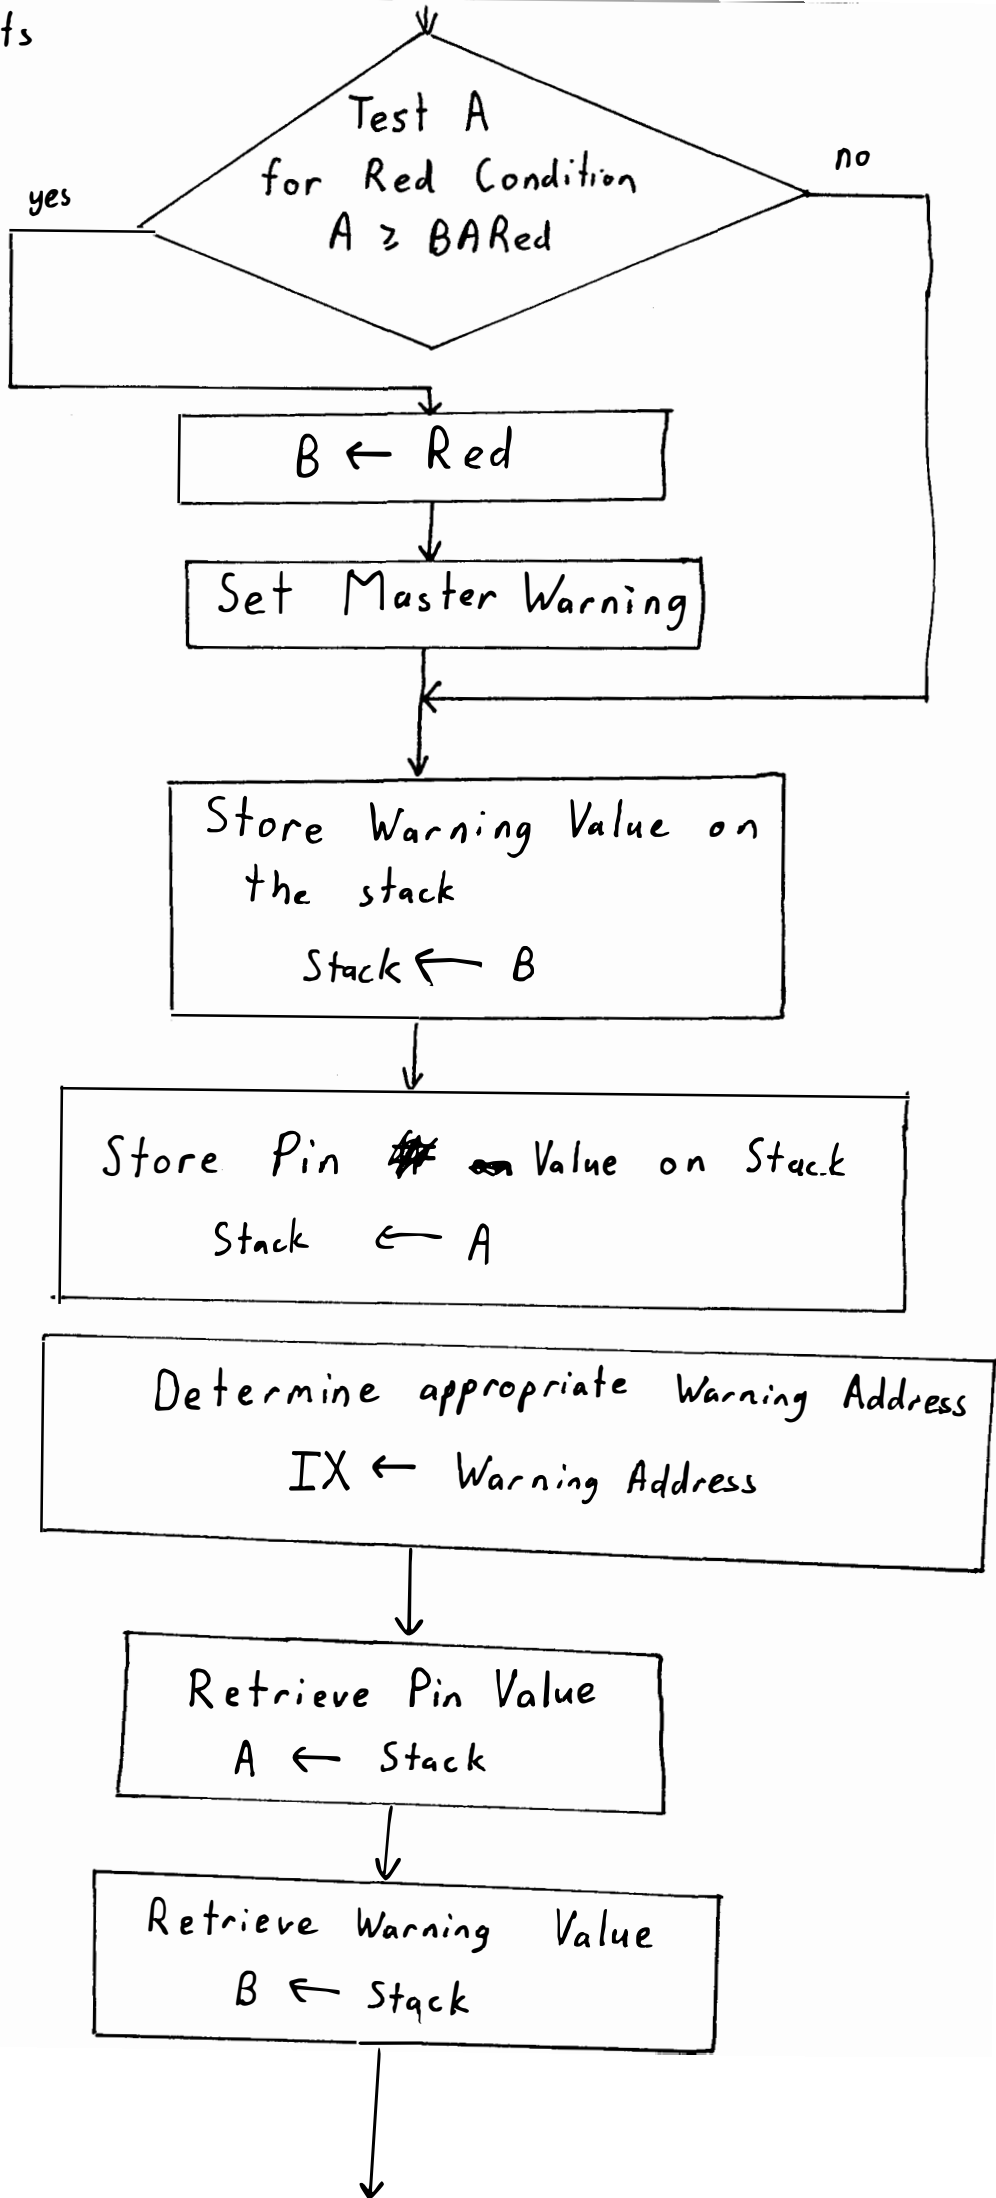 ts
Test A
for Red Condition
A ≥ BARed
yes
no
B ← Red
Set Master Warning
Store Warning Value on
the stack
Stack ← B
Store Pin Value on Stack
Stack ← A
Determine appropriate Warning Address
IX ← Warning Address
Retrieve Pin Value
A ← Stack
Retrieve Warning Value
B ← Stack